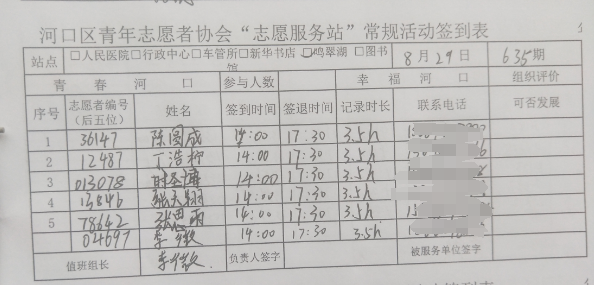 河口区青年志愿者协会“志愿服务站”常规活动签到表
站点 □人民医院□行政中心□车管所□新华书店 □鸣翠湖 □图书馆 8月29日 635期
青春河口 参与人数 幸福河口 组织评价
序号 志愿者编号(后五位) 姓名 签到时间 签退时间 记录时长 联系电话 可否发展
1 36147 陈国成 14:00 17:30 3.5h
2 12487 丁浩 14:00 17:30 3.5h
3 013078 14:00 17:30 3.5h
4 13846 张天翔 14:00 17:30 3.5h
5 78642 张恩雨 14:00 17:30 3.5h
04697 李 14:00 17:30 3.5h
值班组长 李 负责人签字 被服务单位签字